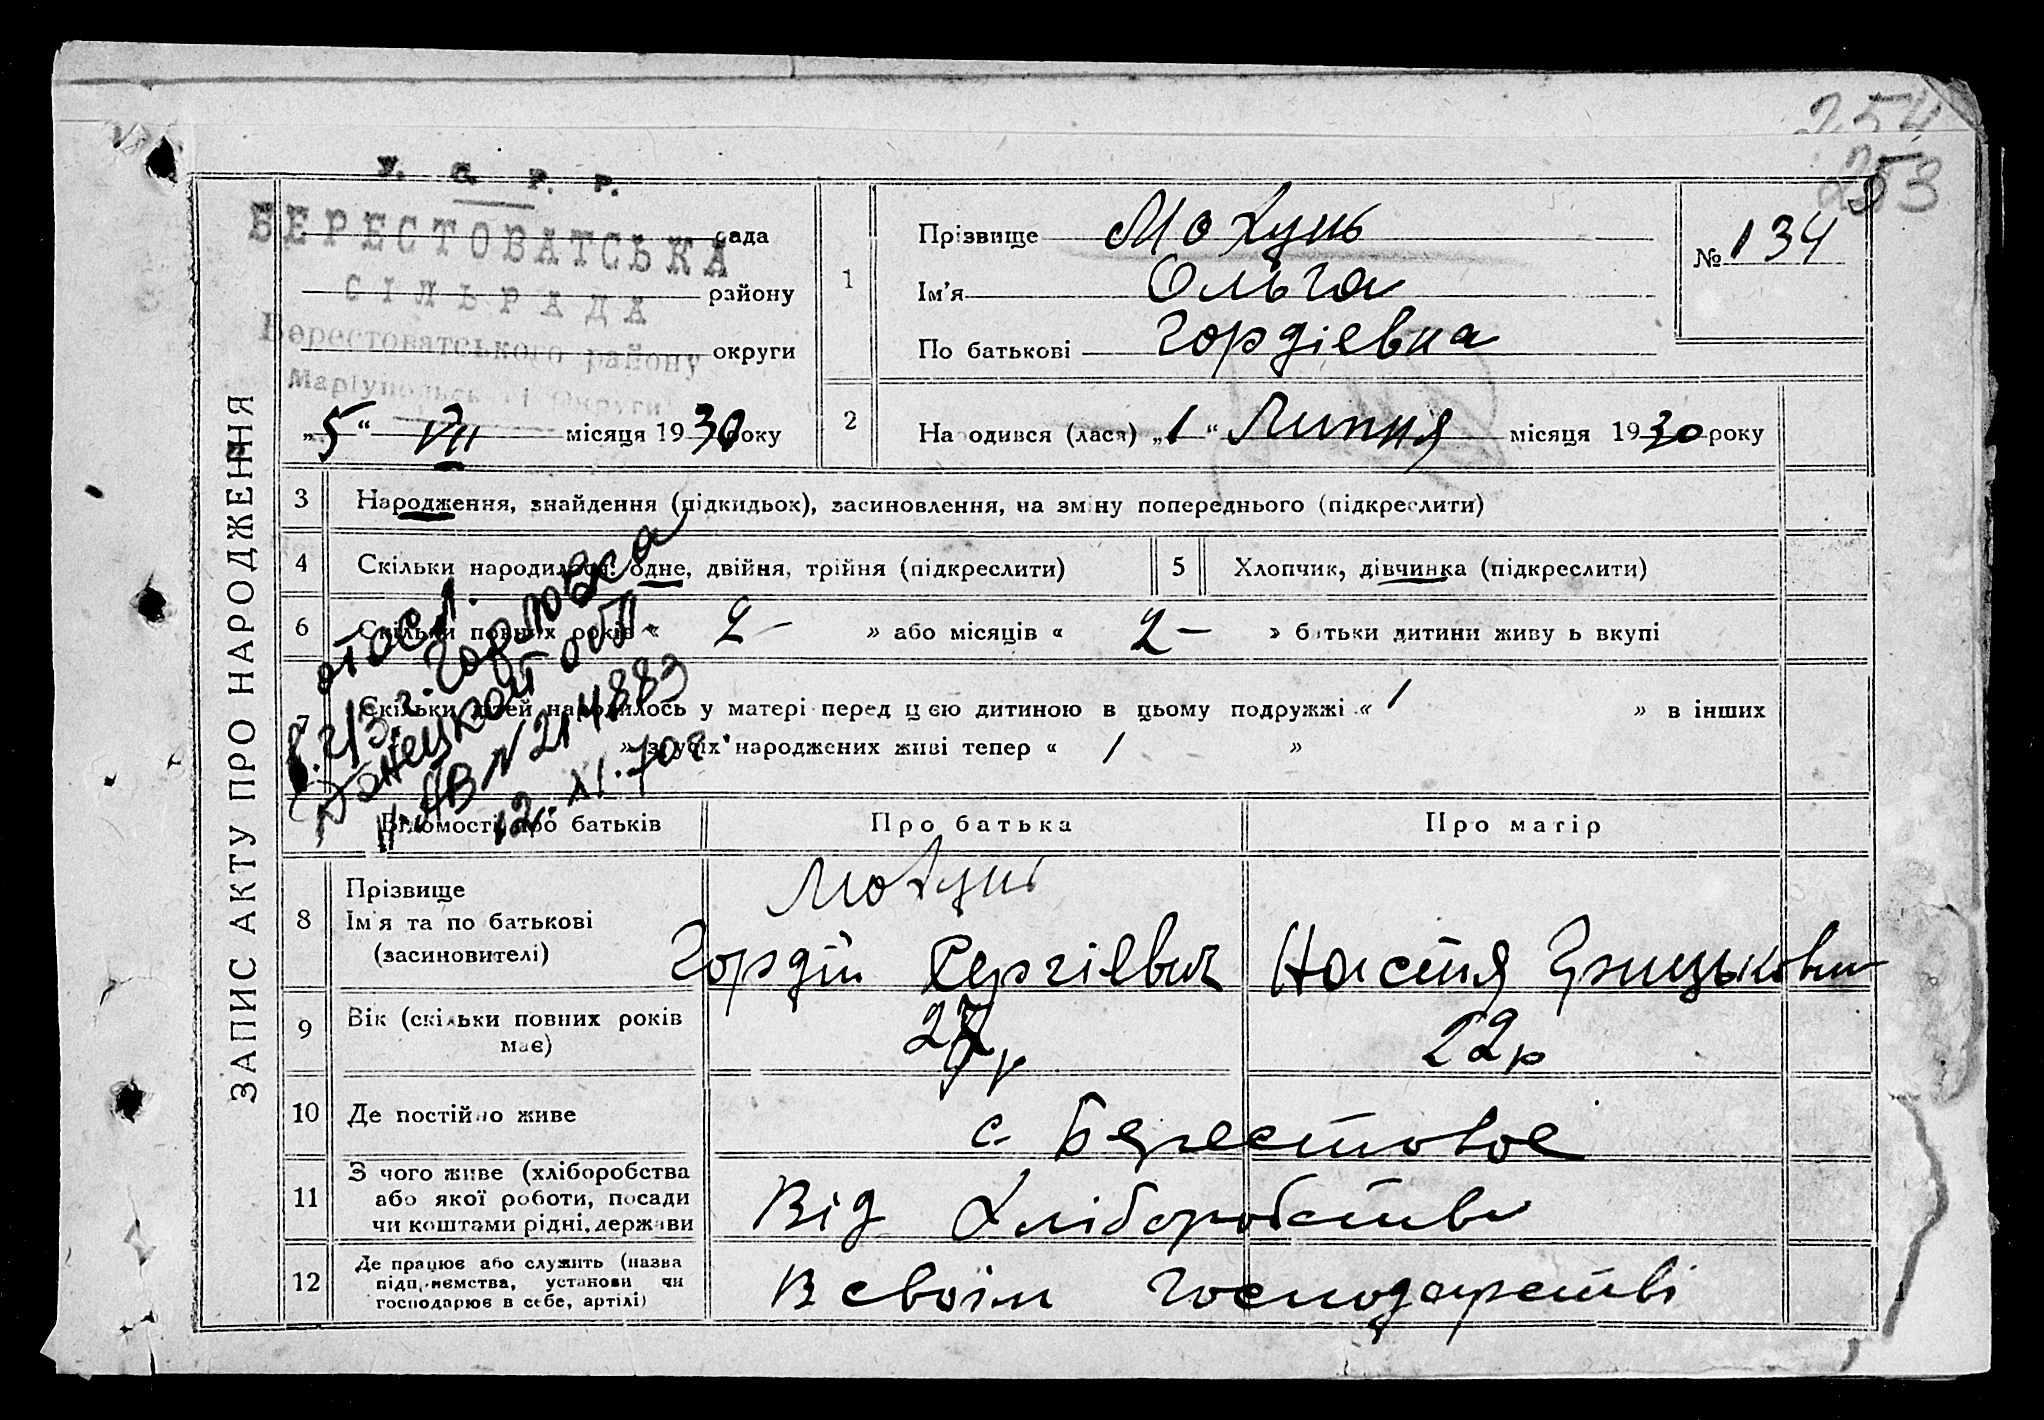 254
253
У. С. Р. Р.
БЕРЕСТОВАТСЬКА
сада
СІЛЬРАДА
району
Берестоватського району
округи
Маріупольської Округи
„5“ VII місяця 1930 року
ЗАПИС АКТУ ПРО НАРОДЖЕННЯ
1 Прізвище Мохунь
Ім'я Ольга
По батькові Гордіевна
№ 134
2 На одився (лася) „1“ Липня місяця 1930 року
3 Народження, знайдення (підкидьок), засиновлення, на зміну попереднього (підкреслити)
4 Скільки народилося: одне, двійня, трійня (підкреслити)
5 Хлопчик, дівчинка (підкреслити)
6 Скільки повних років « 2 – » або місяців « 2 – » батьки дитини живу ь вкупі
7 Скільки дітей народилось у матері перед цією дитиною в цьому подружжі « 1 » в інших
» з усіх народжених живі тепер « 1 »
отосл.
г. Горловка
Донецкой обл.
АВ №214883
12. XI. 70г
Відомості про батьків
Про батька
Про матір
8 Прізвище
Ім'я та по батькові
(засиновителі)
Мохунь
Гордій Сергіевич
Настя Грицьковна
9 Вік (скільки повних років
має)
27р
22р
10 Де постійно живе
с. Берестовое
11 З чого живе (хліборобства
або якої роботи, посади
чи коштами рідні, держави
Від Хліборобства
12 Де працює або служить (назва
підприємства, установи чи
господарює в себе, артілі)
В своїм господарстві